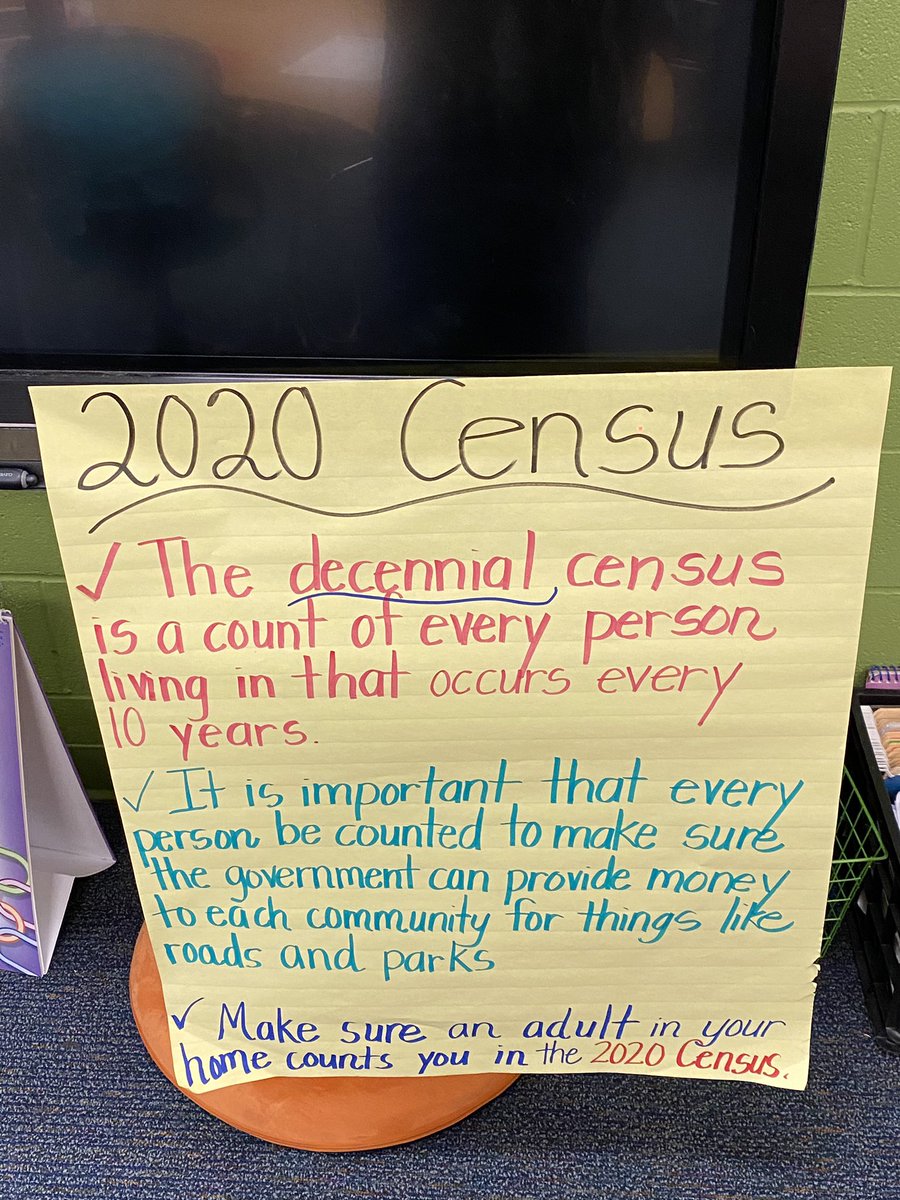 2020 Census
✓ The decennial census
is a count of every person
living in that occurs every
10 years.
✓ It is important that every
person be counted to make sure
the government can provide money
to each community for things like
roads and parks
✓ Make sure an adult in your
home counts you in the 2020 Census.